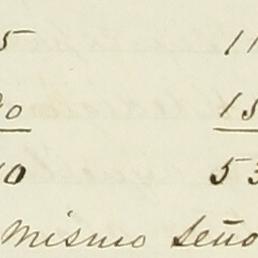 5 11
20 15
10 53
mismo Seño